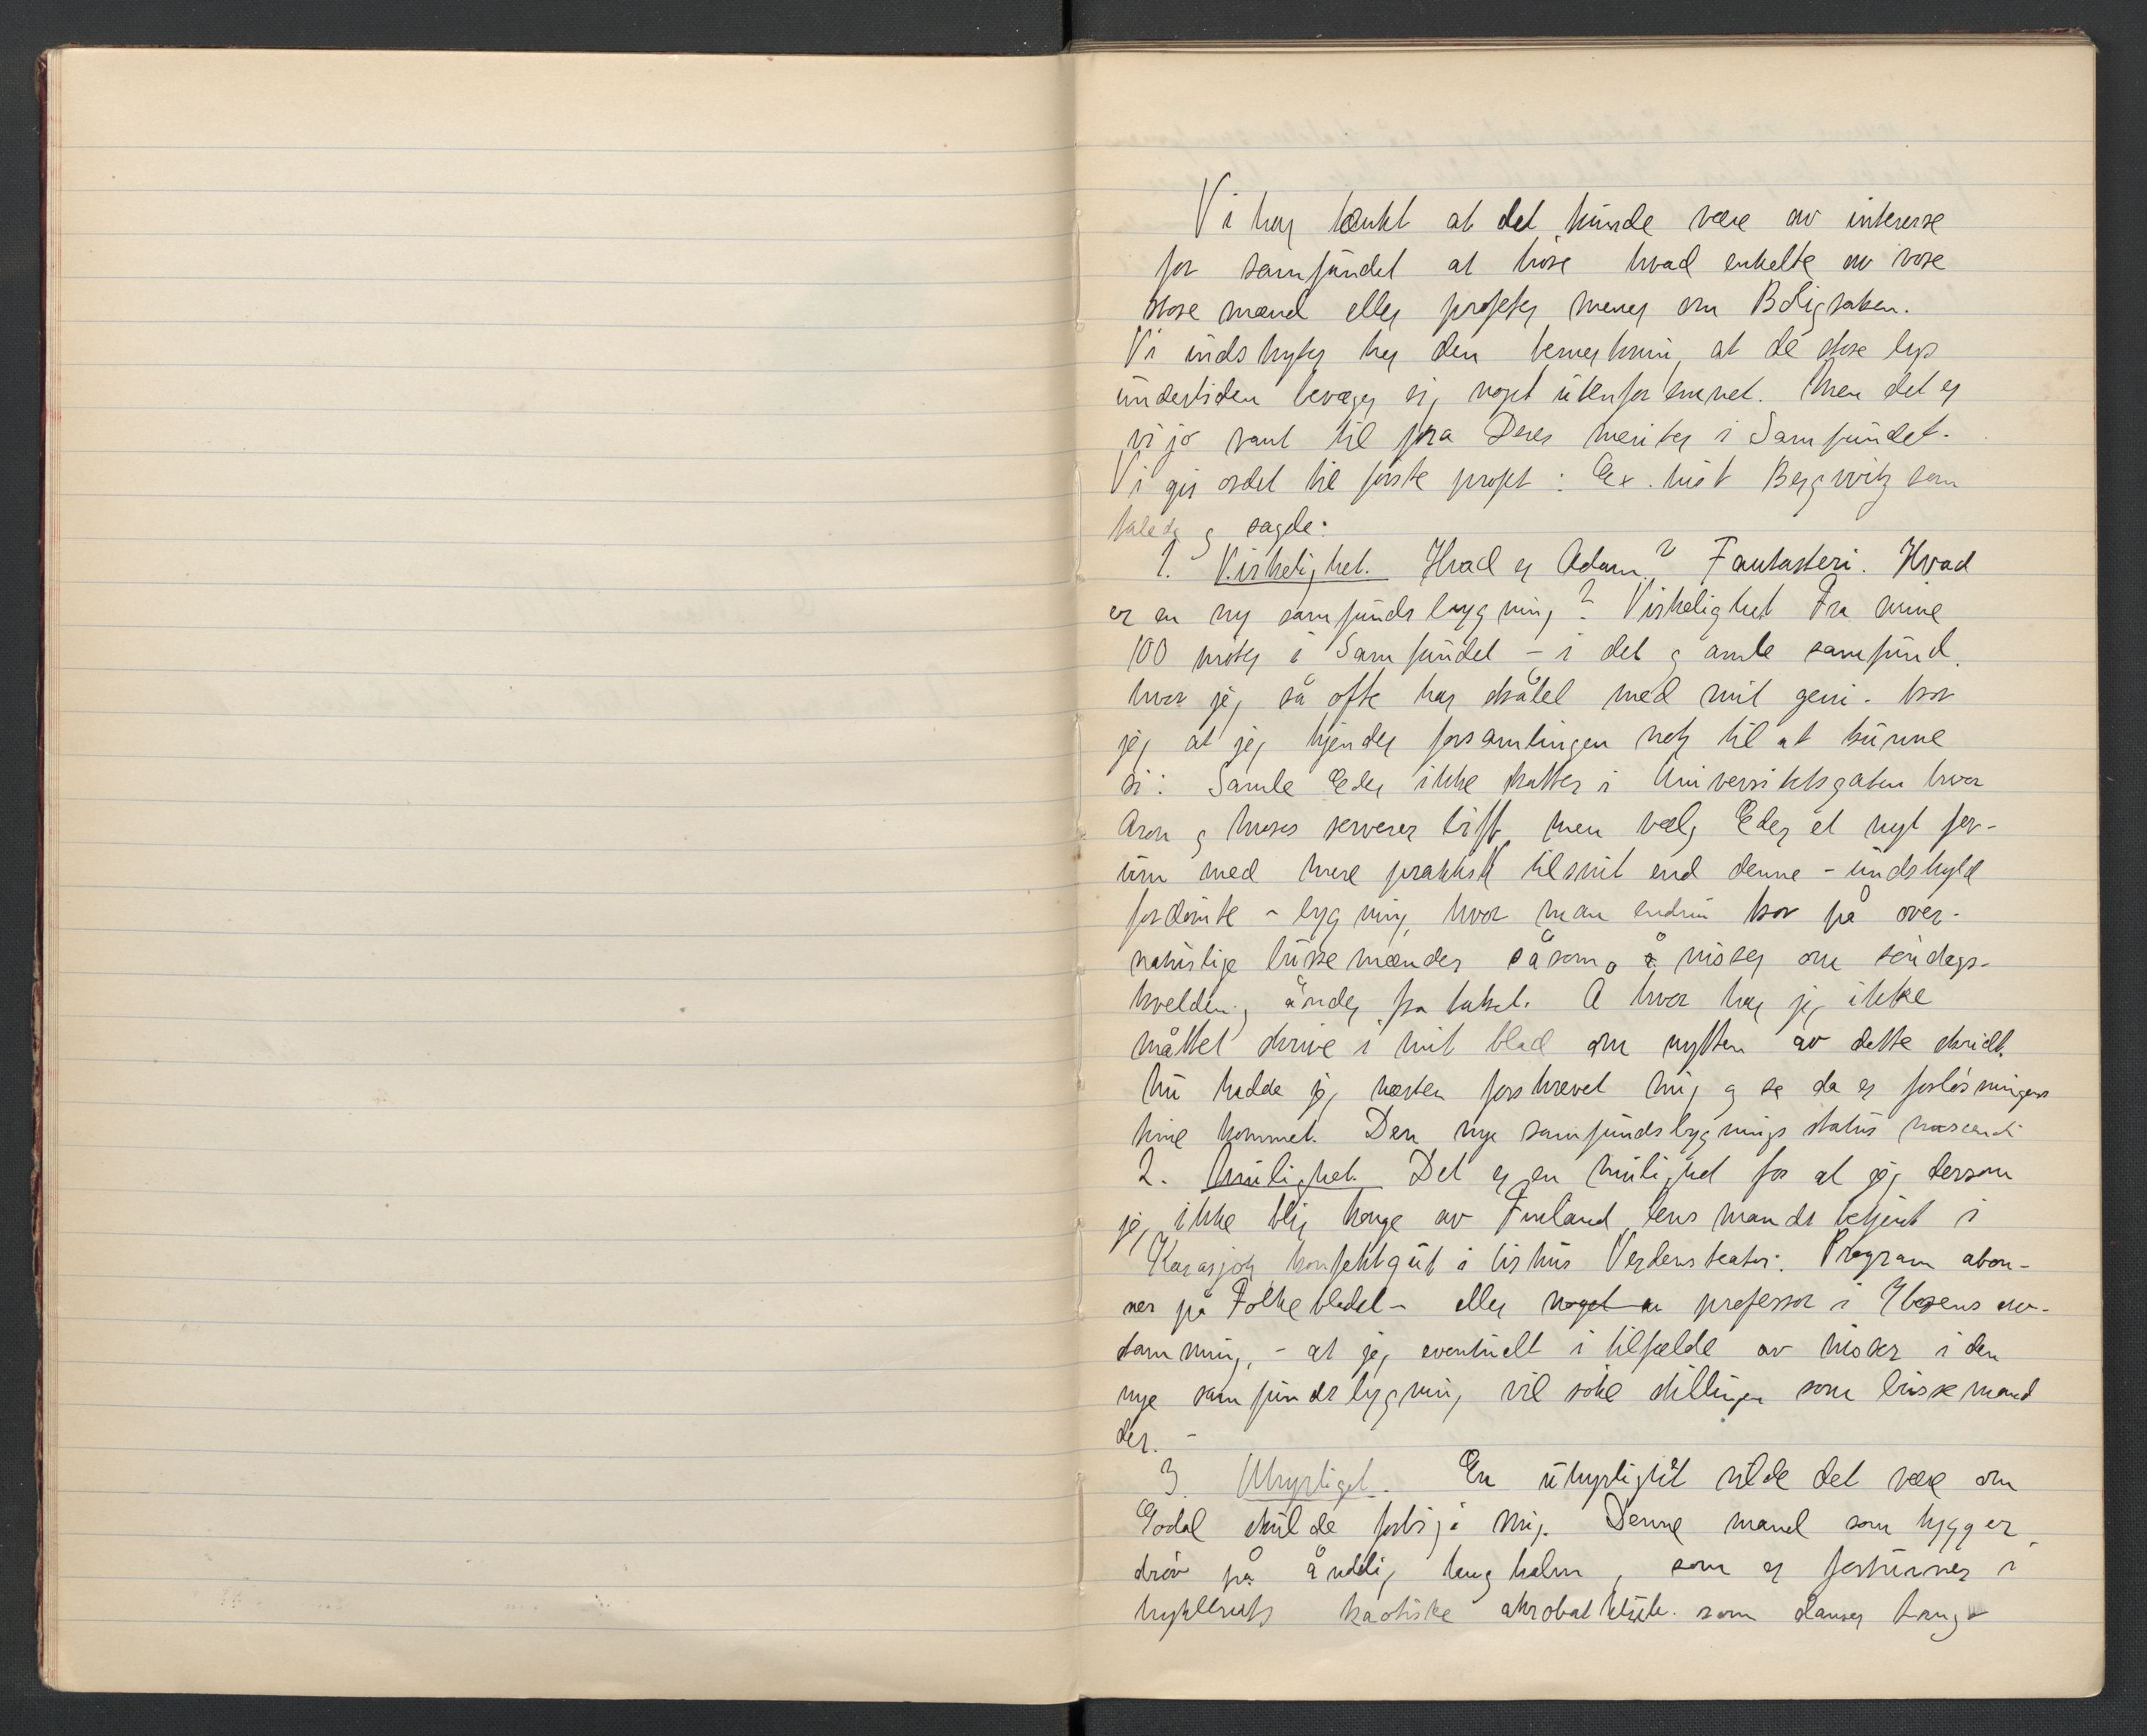 Vi har tænkt at det kunde være av interesse
for samfundet at høre hvad enkelte av vore
store mænd eller profeter mener om Boligsaken.
Vi indskyter her den bemerkning at de store lys
undertiden bevæger sig noget utenfor emnet. Men det er
vi jo vant til fra Deres meriter i Samfundet.
Vi gir ordet til første profet: Ex. hist Bergwitz som
talede og sagde:
1. Virkelighet. Hvad er Adam? Fantasteri. Hvad
er en ny samfundsbygning? Virkelighet Fra mine
100 møter i Samfundet – i det gamle samfund
hvor jeg så ofte har strålet med mit geni. tror
jeg at jeg kjender forsamlingen nok til at kunne
si: Samle Eder ikke skatter i Universitetsgaten hvor
Aron og Moses serverer biff, men vælg Eder et nyt for-
um med mere praktisk tilsnit end denne – undskyld
fordømte – bygning, hvor man endnu tror på over-
naturlige bussemænder såsom nisser om søndags-
kvelden, ånder fra taket. Å hvor har jeg ikke
måttet skrive i mit blad om nytten av dette skridt.
Nu hadde jeg næsten forskrevet mig og se da er forløsningens
time kommet. Den nye samfundsbygnings status nascendi
2. Mulighet. Det er en mulighet for at jeg dersom
jeg ikke blir konge av Finland, lensmandsbetjent i
Karasjok konfektgut i cirkus Verdensteater. Program abon-
ner på Folkebladet – eller noget en professor i Ibsens av-
stamning, – at jeg eventuelt i tilfælde av nisser i den
nye samfundsbygning vil søke stillingen som bussemand
der. –
3. Uhyrliget. En uhyrlighet vilde det være om
Godal skulde forbigå mig. Denne mand som tygger
drøv på åndelig langhalm, som er forturner i
hykleriets kaotiske akrobatklub. som danser tango